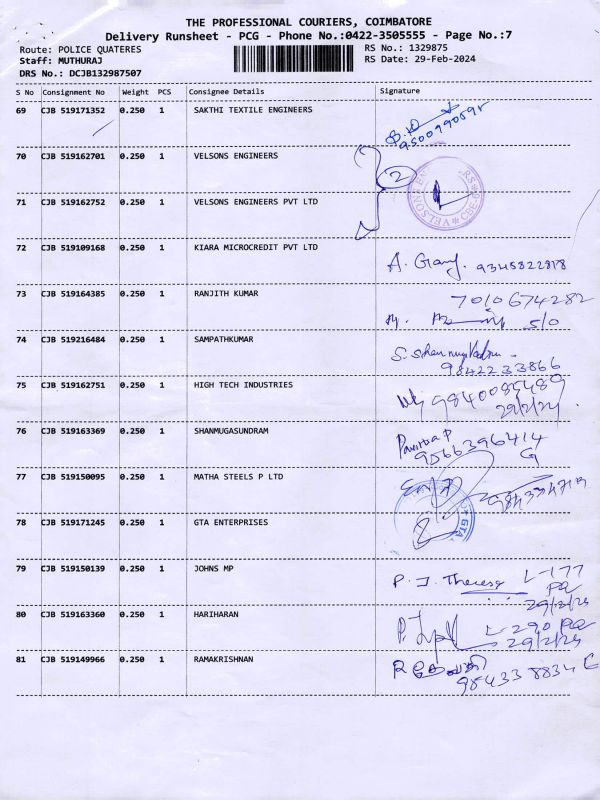 THE PROFESSIONAL COURIERS, COIMBATORE
Delivery Runsheet - PCG - Phone No.:0422-3505555 - Page No.:7
Route: POLICE QUATERES
RS No.: 1329875
Staff: MUTHURAJ
RS Date: 29-Feb-2024
DRS No.: DCJB132987507
S No Consignment No Weight PCS Consignee Details Signature
69 CJB 519171352 0.250 1 SAKTHI TEXTILE ENGINEERS
70 CJB 519162701 0.250 1 VELSONS ENGINEERS
2
71 CJB 519162752 0.250 1 VELSONS ENGINEERS PVT LTD
72 CJB 519109168 0.250 1 KIARA MICROCREDIT PVT LTD
A.
73 CJB 519164385 0.250 1 RANJITH KUMAR
7010674282
S/O
74 CJB 519216484 0.250 1 SAMPATHKUMAR
9842233866
75 CJB 519162751 0.250 1 HIGH TECH INDUSTRIES
29/2/24
76 CJB 519163369 0.250 1 SHANMUGASUNDRAM
Pavithra P
9566396414
G
77 CJB 519150095 0.250 1 MATHA STEELS P LTD
78 CJB 519171245 0.250 1 GTA ENTERPRISES
GTA
79 CJB 519150139 0.250 1 JOHNS MP
P. J. Theresa L-177
29/2/24
80 CJB 519163360 0.250 1 HARIHARAN
L-290
29/2/24
81 CJB 519149966 0.250 1 RAMAKRISHNAN
984338834